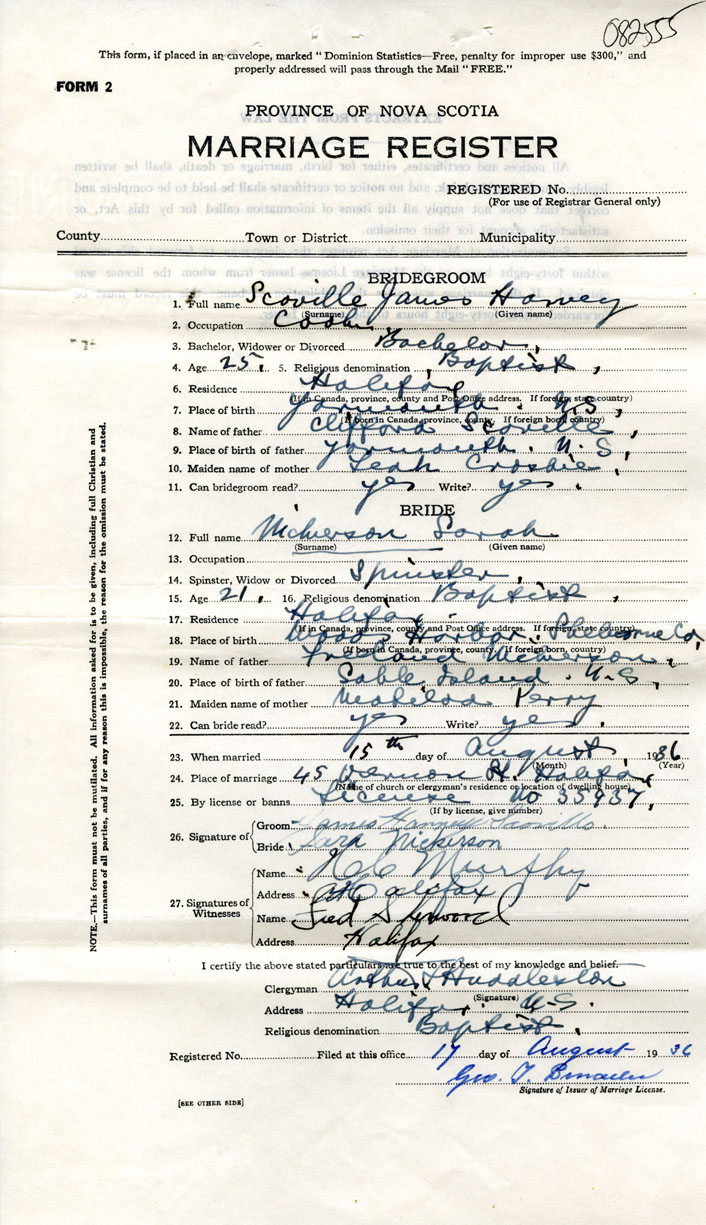 082555
This form, if placed in an envelope, marked "Dominion Statistics—Free, penalty for improper use $300," and
properly addressed will pass through the Mail "FREE."
FORM 2
PROVINCE OF NOVA SCOTIA
MARRIAGE REGISTER
REGISTERED No.
(For use of Registrar General only)
County Town or District Municipality
BRIDEGROOM
1. Full name Scoville James Harvey
(Surname) (Given name)
2. Occupation Cook
3. Bachelor, Widower or Divorced Bachelor,
4. Age 25, 5. Religious denomination Baptist,
6. Residence Halifax
(If in Canada, province, county and Post Office address. If foreign, state country)
7. Place of birth Yarmouth. N.S,
(If born in Canada, province, county. If foreign born, country)
8. Name of father Clifford Scoville,
9. Place of birth of father Yarmouth. N.S,
10. Maiden name of mother Leah Crosbie,
11. Can bridegroom read? yes Write? yes.
BRIDE
12. Full name Sarah
(Surname) (Given name)
13. Occupation
14. Spinster, Widow or Divorced Spinster,
15. Age 21, 16. Religious denomination Baptist,
17. Residence Halifax
(If in Canada, province, county and Post Office address. If foreign state country)
18. Place of birth Woods Harbor. Shelburne Co,
(If born in Canada, province, county. If foreign born, country)
19. Name of father Freeland
20. Place of birth of father Cable Island. N.S,
21. Maiden name of mother Perry
22. Can bride read? yes Write? yes.
23. When married 15th day of August, 1936
(Month) (Year)
24. Place of marriage 45 Vernon St. Halifax,
(Name of church or clergyman's residence or location of dwelling house)
25. By license or banns License No 35937,
(If by license, give number)
26. Signature of Groom James Harvey Scoville
Bride Sara Nickerson
27. Signatures of Witnesses Name Murphy
Address Halifax
Name Fred Sherwood
Address Halifax
I certify the above stated particulars are true to the best of my knowledge and belief.
Clergyman Arthur Huddleston
(Signature)
Address Halifax. N.S.
Religious denomination Baptist.
Registered No. Filed at this office 17 day of August 19 36
Geo. T.
Signature of Issuer of Marriage License.
[SEE OTHER SIDE]
NOTE.—This form must not be mutilated. All information asked for is to be given, including full Christian and
surnames of all parties, and if for any reason this is impossible, the reason for the omission must be stated.